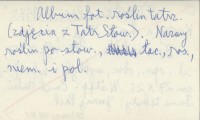 Album fot. roślin tatrz.
(zdjęcia z Tatr Słow.). Nazwy
roślin po słow., łac., ros.,
niem. i pol.